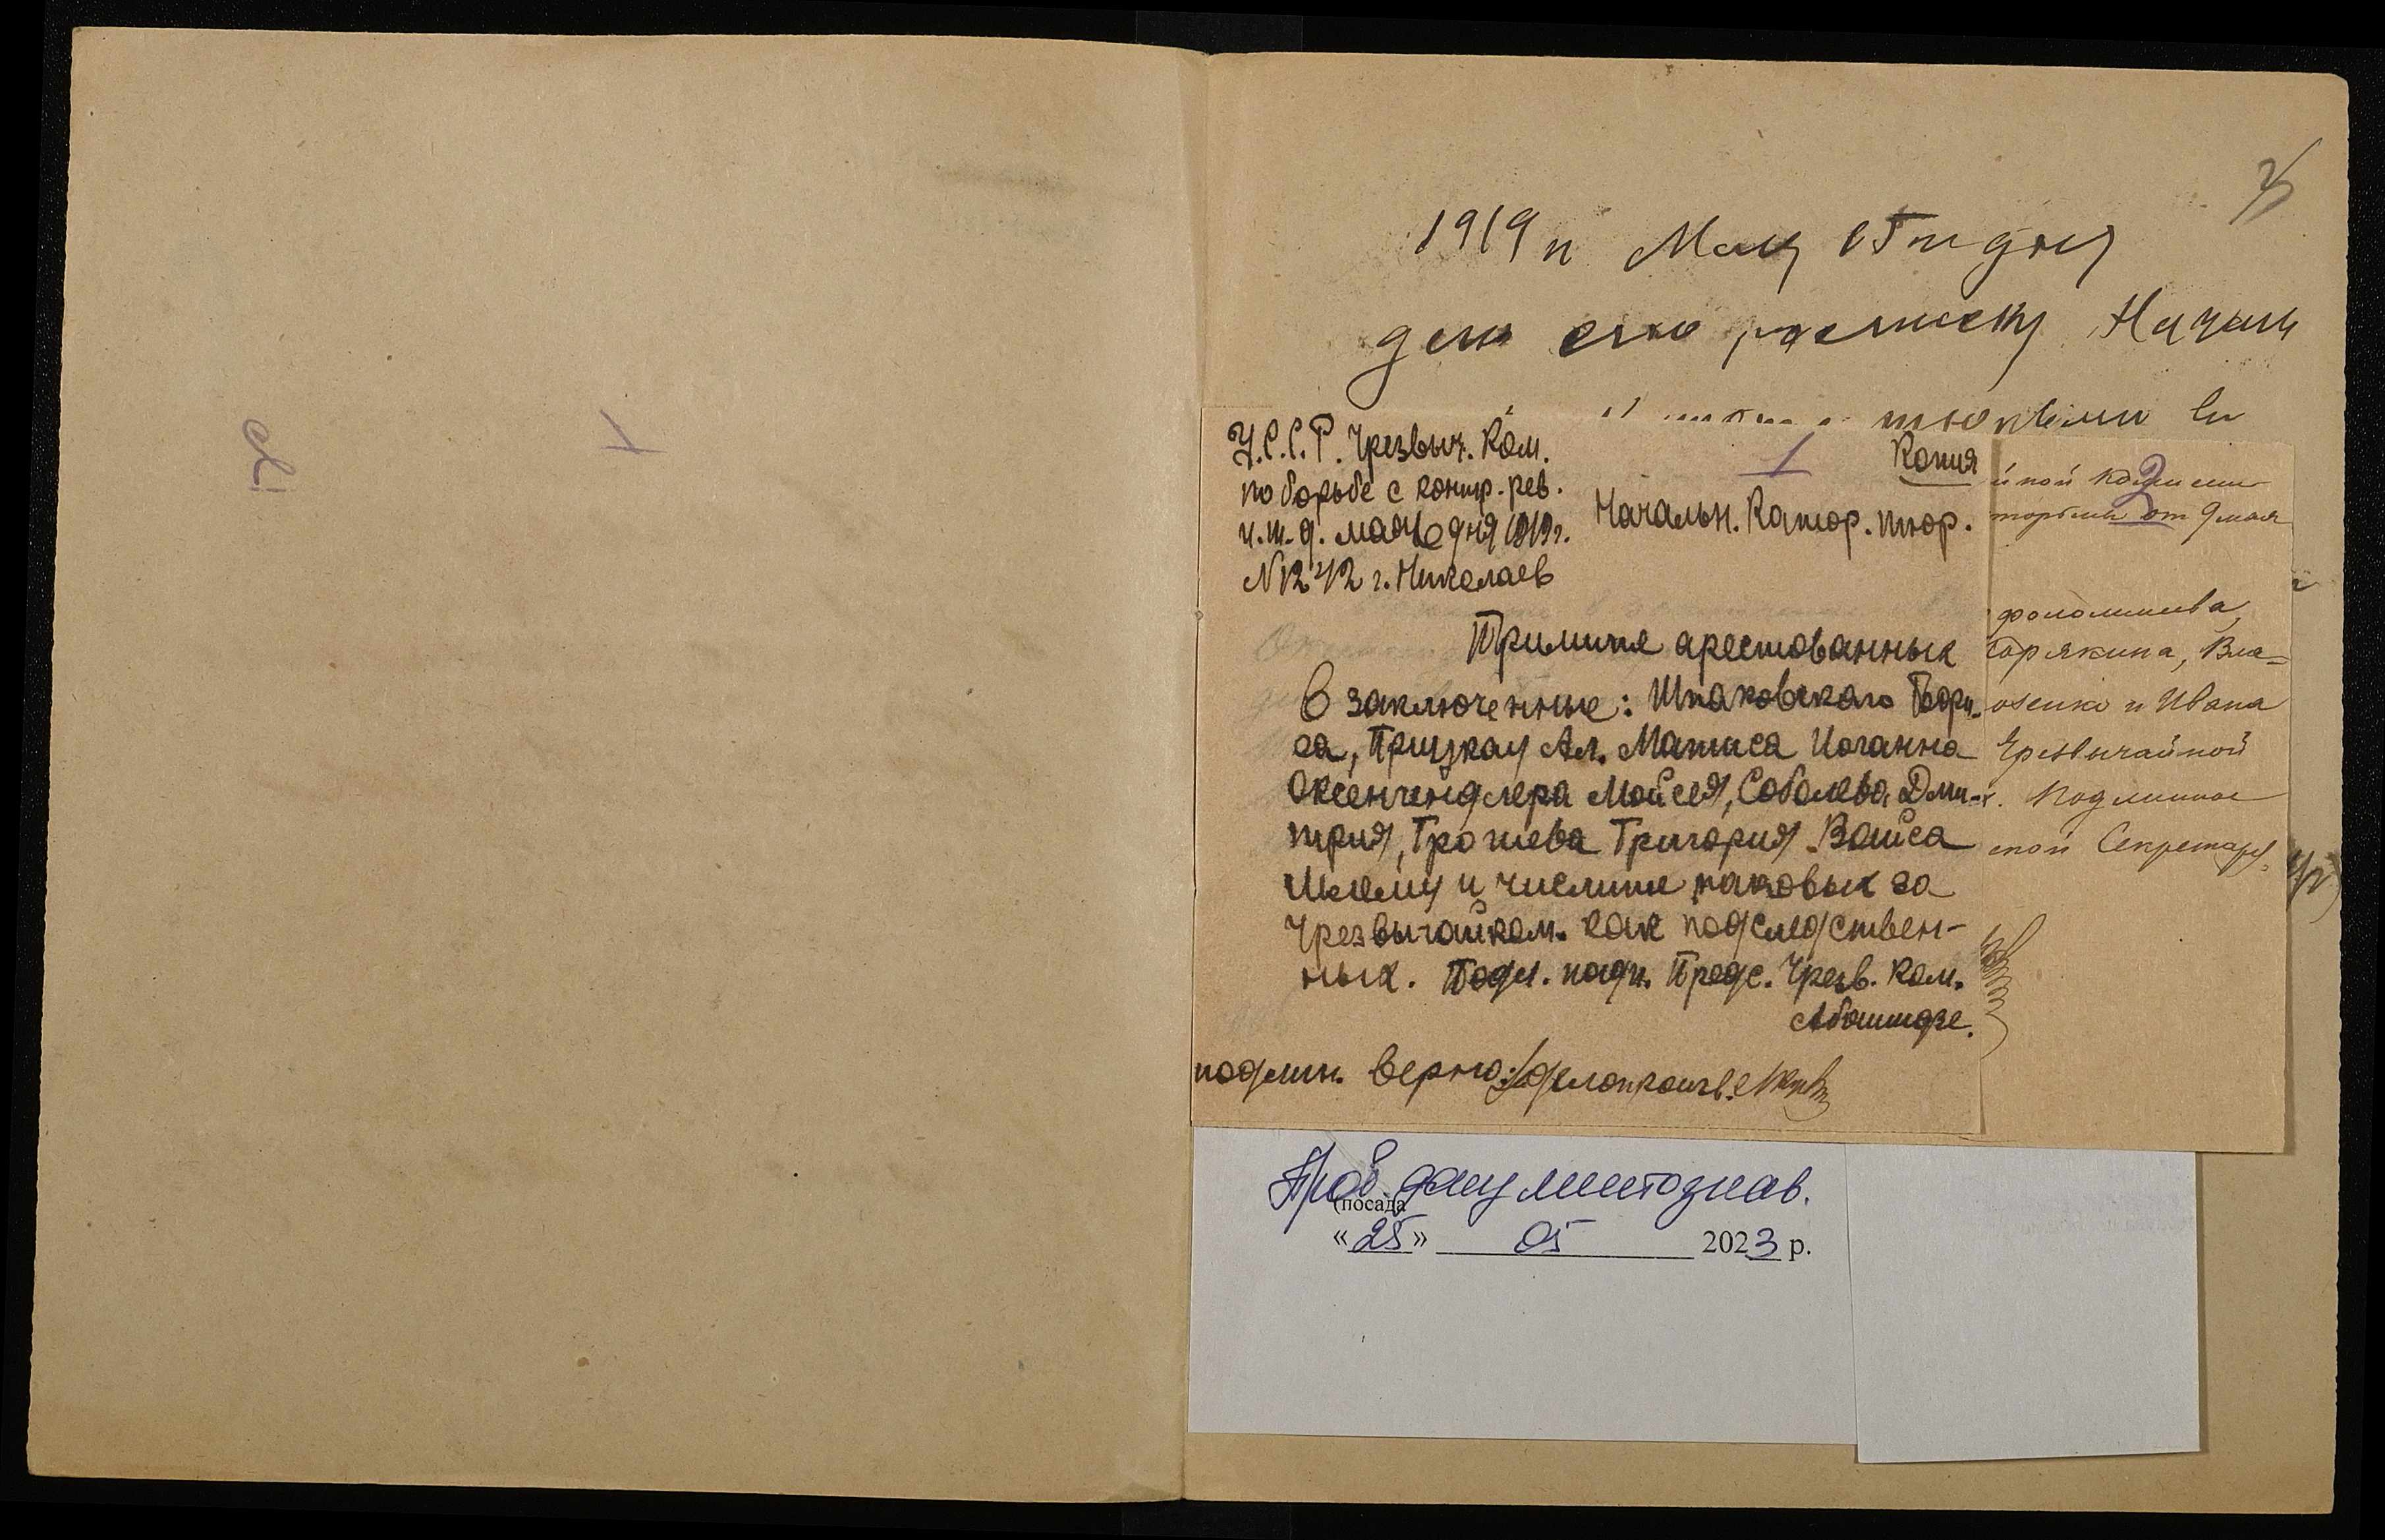 1919 г Мая дня
дел Началь
тюремы
У.С.С.Р. Чрезвыч. Ком.
по борьбе с контр.-рев.
и.т.д. мая 6 дня 1919 г.
N 1242 г. Николаев
1
Копия
Начальн. Катор. тюр.
Примите арестованных
в заключенные: Шпаковского Бори-
са, Прицкау Ал. Матиса Иоганна
Оксенгендлера Мойсея, Соболева Дми-
трия, Грошева Григория Вайса
Шлему и числите таковых за
Чрезвычайком. как подследствен-
ных. Подл. подп. Предс. Чрезв. Ком.
Абашидзе.
подлин. верно: делопроизв.
2
йной Комисси
от 9 мая
фоломеева,
Горякина, Вла-
оженко и Ивана
Чрезвычайной
. Подлинное
Секретарь
Пров. документознав.
(посада
«25» 05 2023 р.